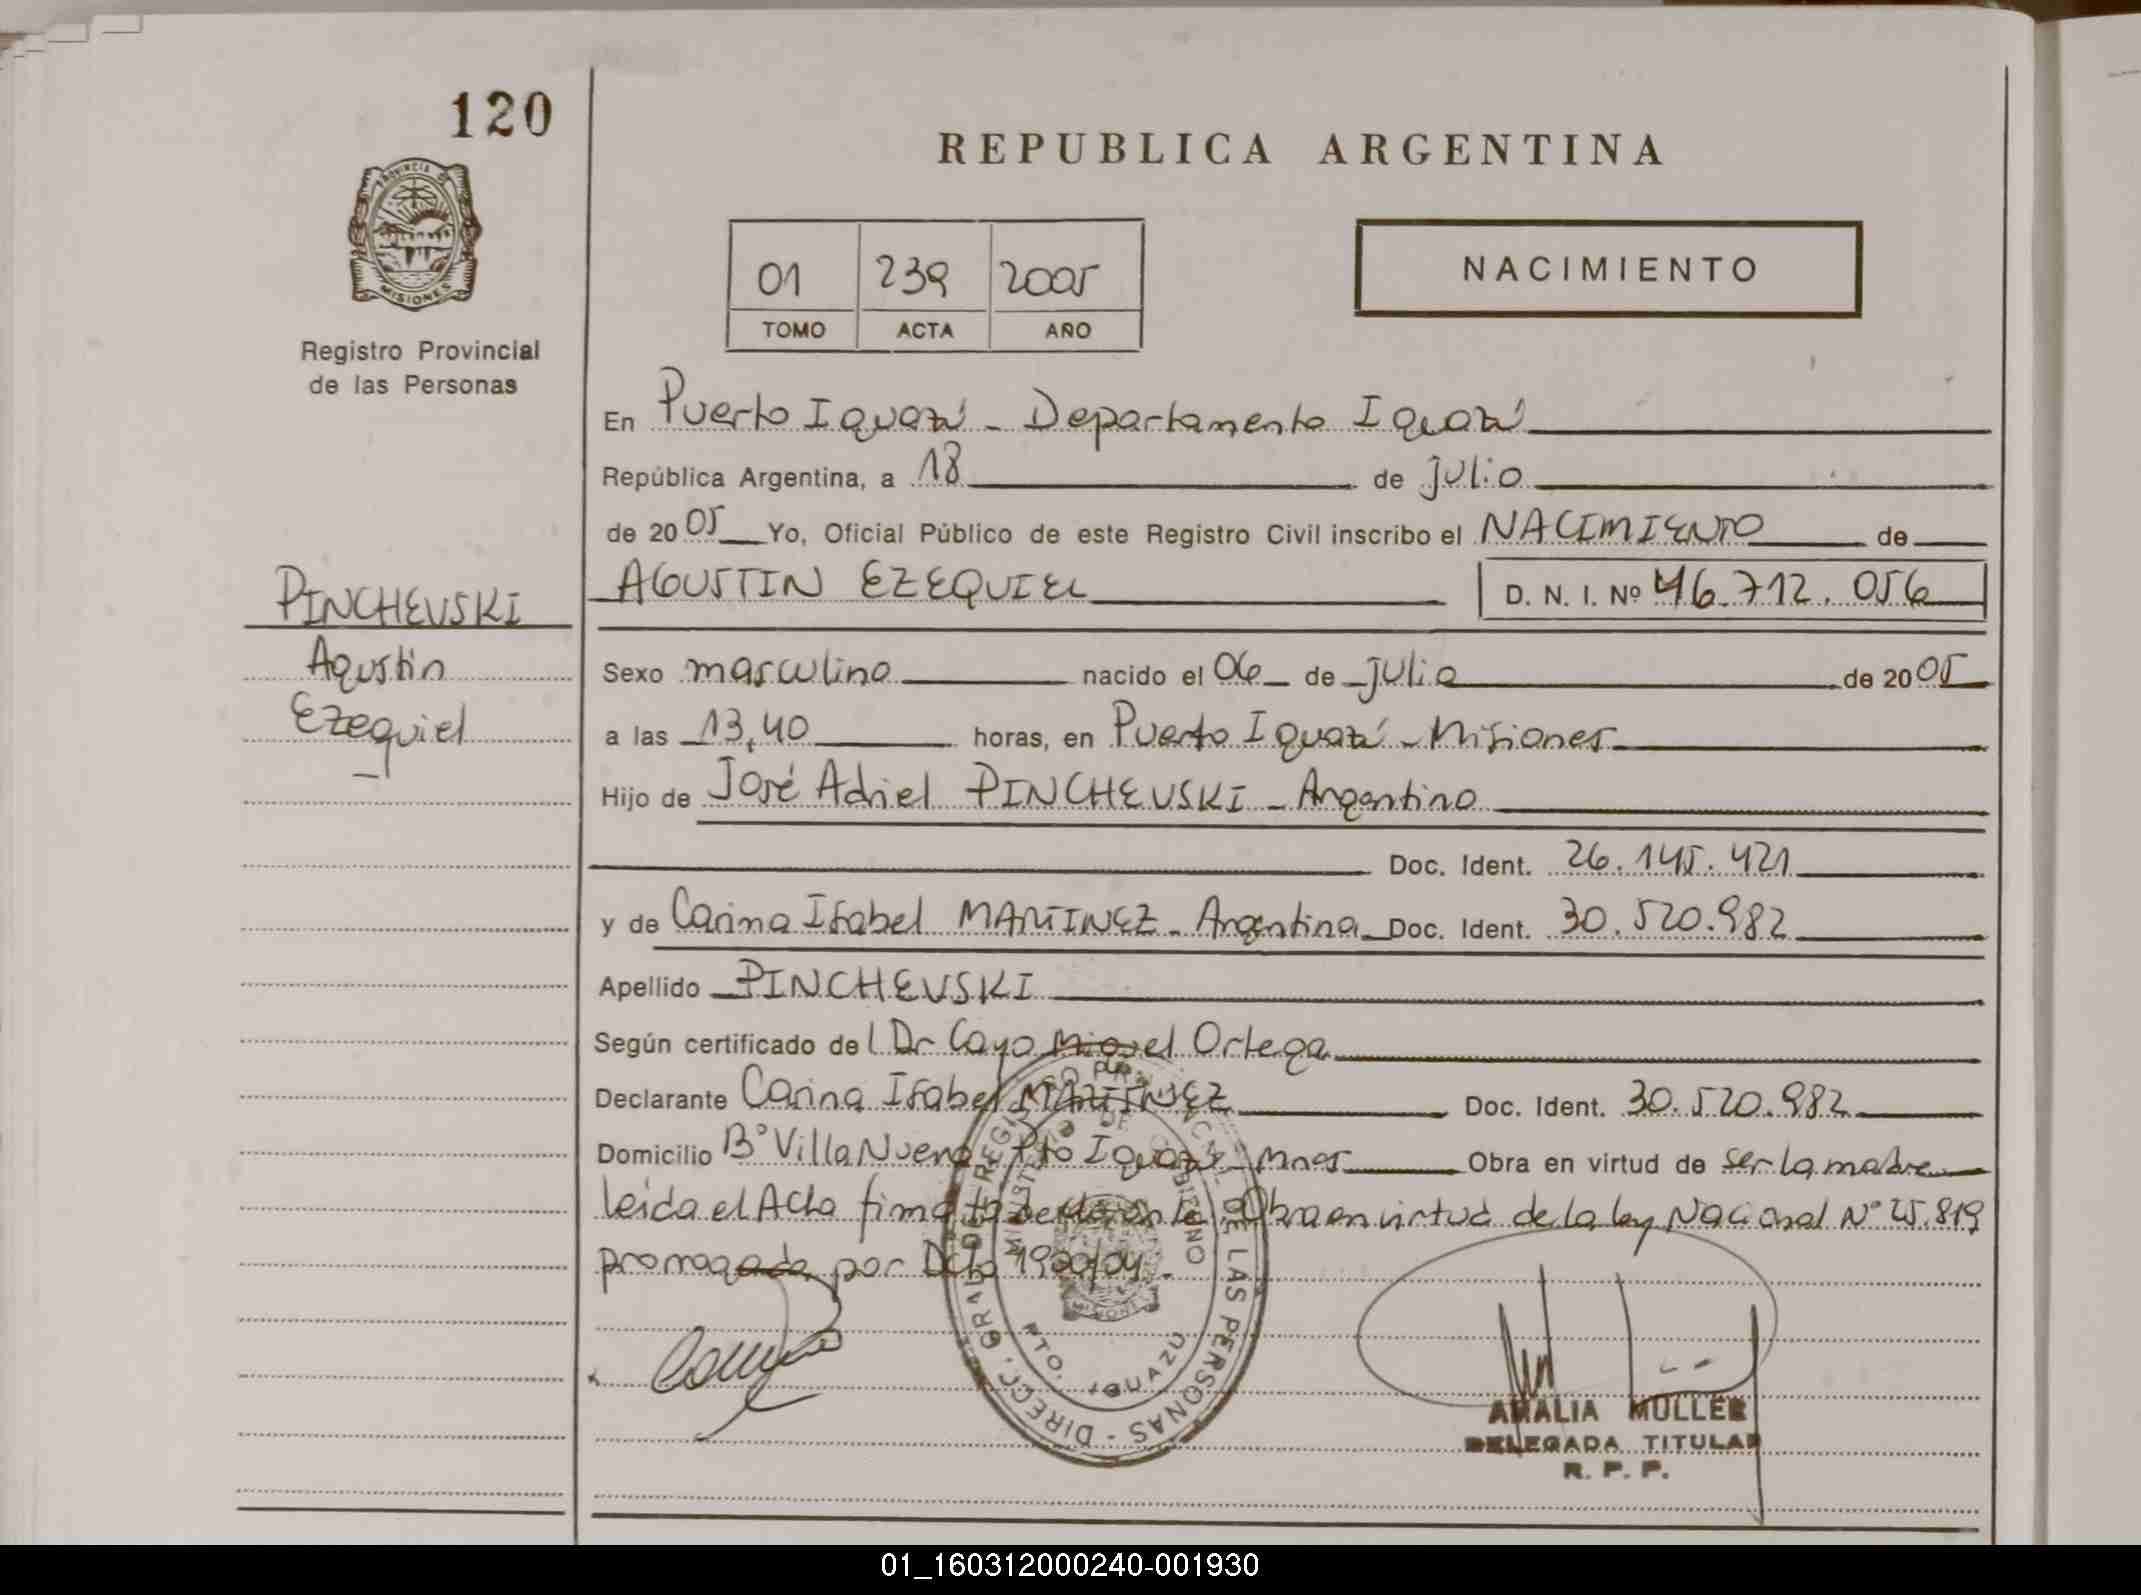 120
REPUBLICA ARGENTINA
PROVINCIA DE
MISIONES
Registro Provincial
de las Personas
01 239 2005
TOMO ACTA AÑO
NACIMIENTO
En Puerto Iguazú - Departamento Iguazú
República Argentina, a 18 de julio
de 2005 Yo, Oficial Público de este Registro Civil inscribo el NACIMIENTO de
AGUSTIN EZEQUIEL D. N. I. Nº 46.712.056
PINCHEVSKI
Agustin
Ezequiel
Sexo masculino nacido el 06 de julio de 2005
a las 13,40 horas, en Puerto Iguazú - Misiones
Hijo de José Adriel PINCHEVSKI - Argentino
Doc. Ident. 26.145.421
y de Carina Isabel MARTINEZ - Argentina Doc. Ident. 30.520.982
Apellido PINCHEVSKI
Según certificado del Dr Cayo Miguel Ortega
Declarante Carina Isabel MARTINEZ Doc. Ident. 30.520.982
Domicilio B° Villa Nueva Pto Iguazú - Mnes Obra en virtud de ser la madre
leida el Acta firma la declarante Obra en virtud de la ley Nacional N° 25.819
prorrogada por Dcto 1900/04.
DIRECC. GRAL. DEL REGISTRO PROVINCIAL DE LAS PERSONAS -
MINISTERIO DE GOBIERNO
MISIONES
PTO. IGUAZU
AMALIA MULLER
DELEGADA TITULAR
R. P. P.
01_160312000240-001930